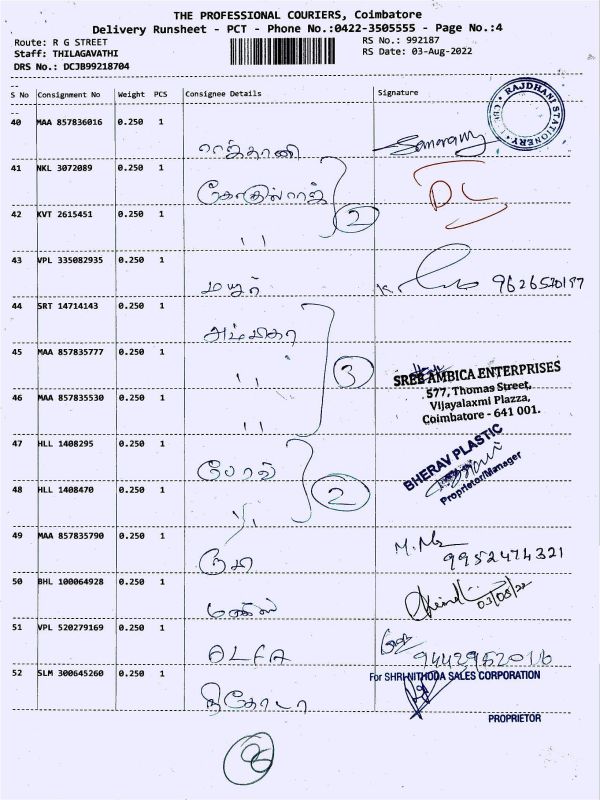 THE PROFESSIONAL COURIERS, Coimbatore
Delivery Runsheet - PCT - Phone No.:0422-3505555 - Page No.:4
Route: R G STREET
Staff: THILAGAVATHI
DRS No.: DCJB99218704
RS No.: 992187
RS Date: 03-Aug-2022
S No Consignment No Weight PCS Consignee Details Signature
RAJDHANI STATIONERY
40 MAA 857836016 0.250 1
ராஜ்தானி
41 NKL 3072089 0.250 1
கோகுல்ராஜ்
2
DC
42 KVT 2615451 0.250 1
"
43 VPL 335082935 0.250 1
மயூர்
44 SRT 14714143 0.250 1
அம்பிகா
45 MAA 857835777 0.250 1
"
3
SREE AMBICA ENTERPRISES
577, Thomas Street,
Vijayalaxmi Plazza,
Coimbatore - 641 001.
46 MAA 857835530 0.250 1
"
47 HLL 1408295 0.250 1
2
BHERAV PLASTIC
Proprietor/Manager
48 HLL 1408470 0.250 1
"
49 MAA 857835790 0.250 1
9952474321
50 BHL 100064928 0.250 1
03/08/22
51 VPL 520279169 0.250 1
ALFA
52 SLM 300645260 0.250 1
For SHRI NITHODA SALES CORPORATION
நிதோடா
PROPRIETOR